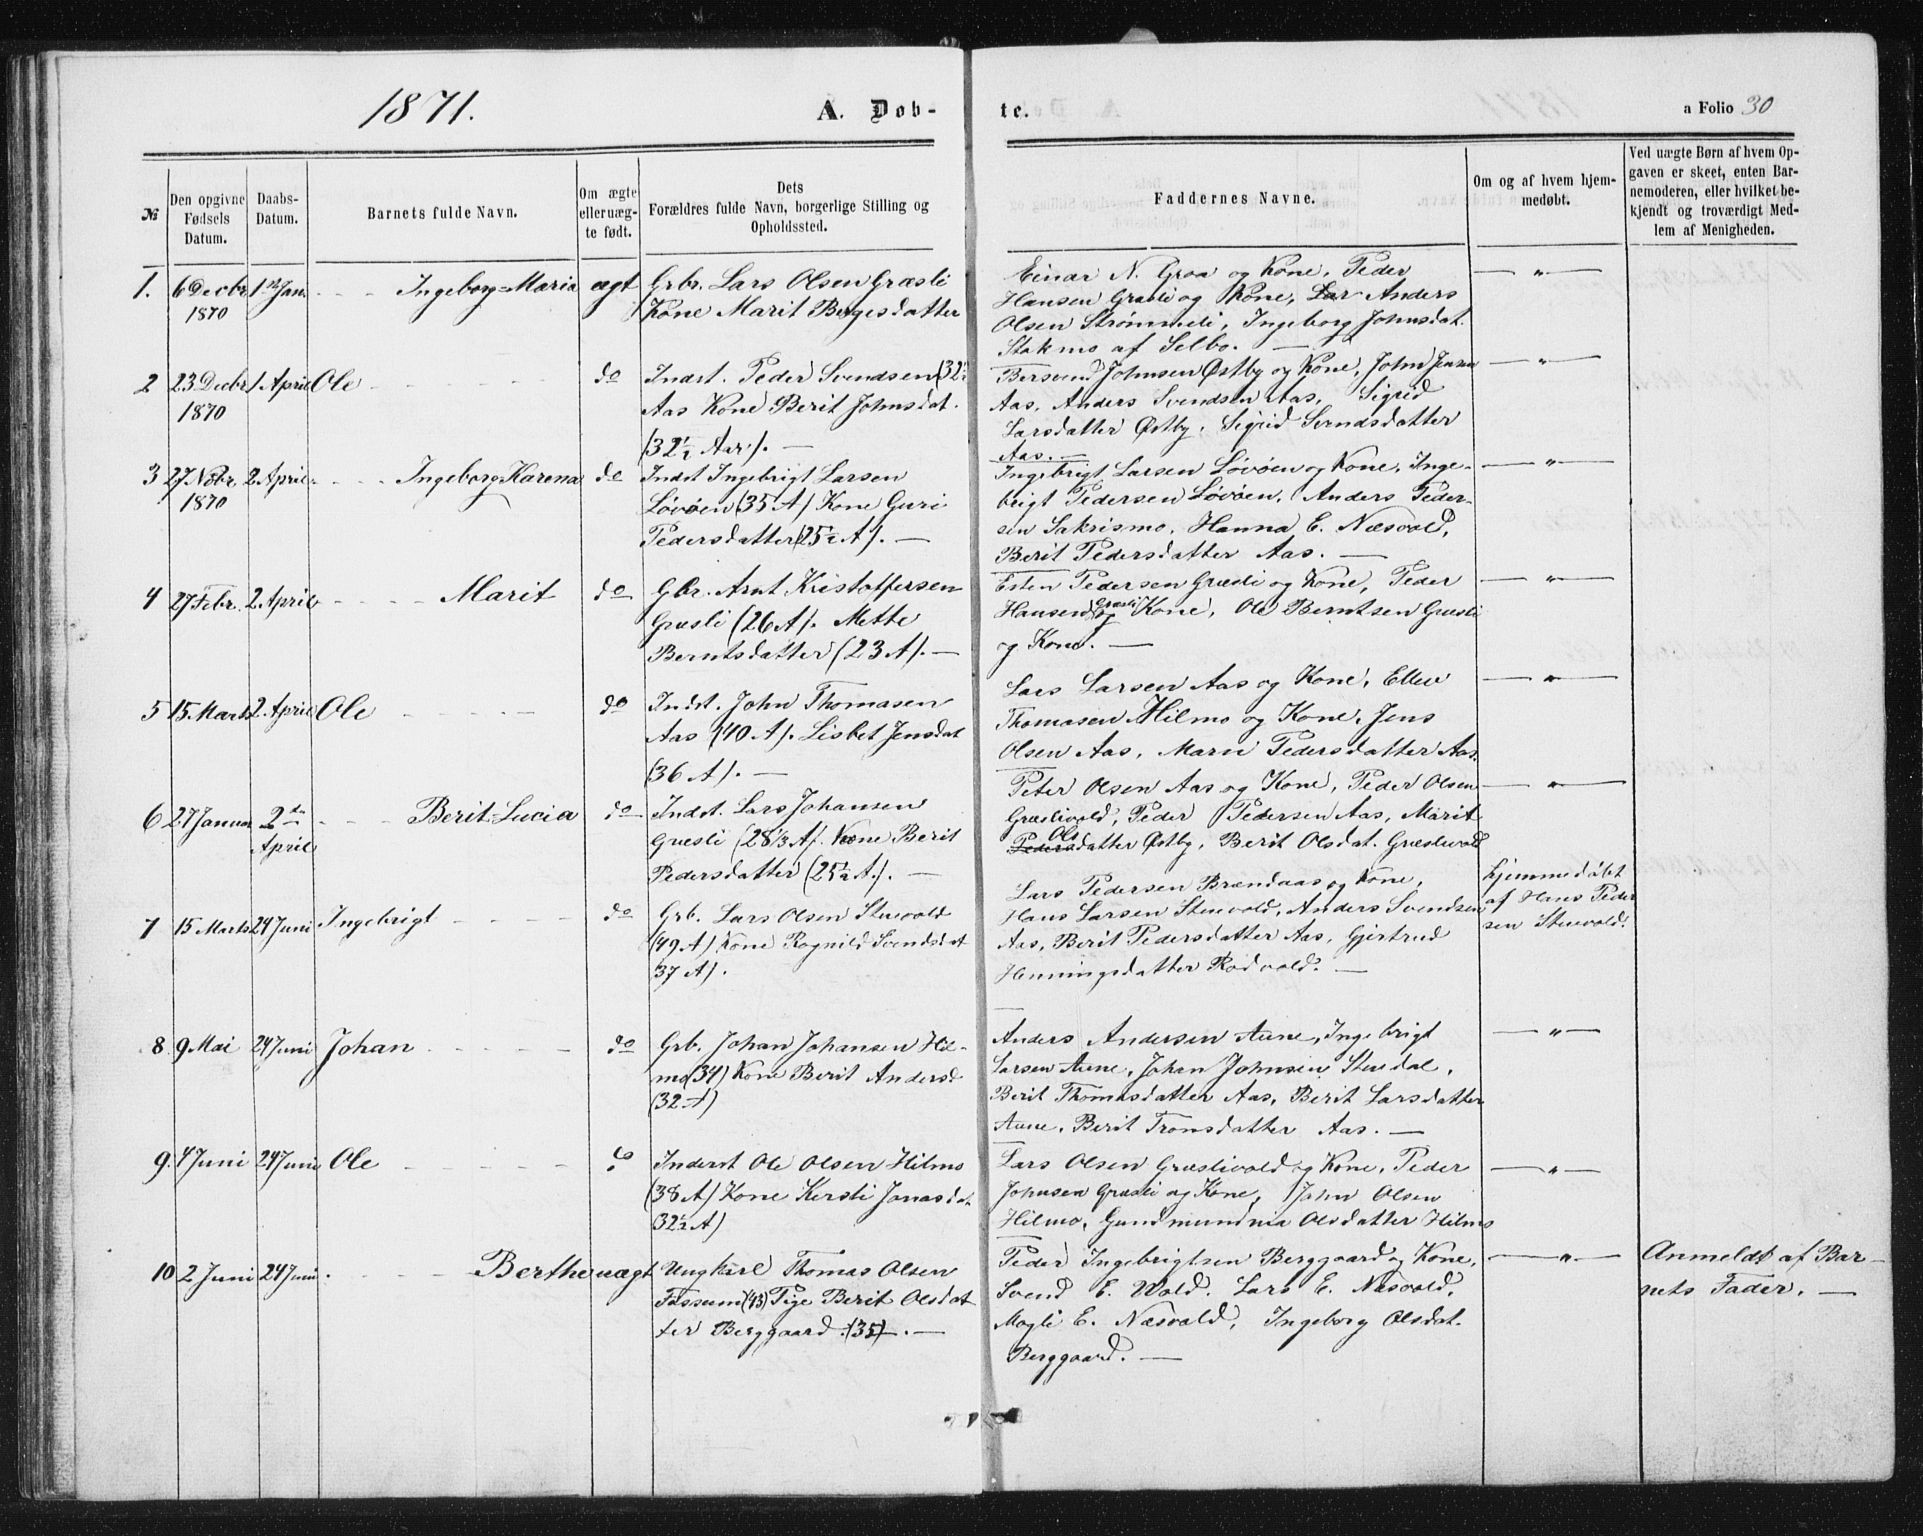 1871.
A. Døb-
te.
a Folio 30
№
Den opgivne
Fødsels
Datum.
Daabs-
Datum.
Barnets fulde Navn.
Om ægte
eller uæg-
te født.
Dets
Forældres fulde Navn, borgerlige Stilling og
Opholdssted.
Faddernes Navne.
Om og af hvem hjem-
medøbt.
Ved uægte Børn af hvem Op-
gaven er skeet, enten Bar-
nemoderen, eller hvilket be-
kjendt og troværdigt Med-
lem af Menigheden.
1. 6 Decbr 1ste Jan. Ingeborg-Maria ægt Grbr. Lars Olsen Græsli
1870 Kone Marit Bergesdatter
Einar N. Groa og Kone, Peder
Hansen Græsli og Kone, Lar Anders
Olsen Strømmeli, Ingeborg Johnsdat.
Stokmo af Selbo. —
— " —
2 23 Decbr 1 April Ole do Indst. Peder Svendsen (32½
1870 Aas Kone Berit Johnsdat.
(32½ Aar). —
Bersvend Johnsen Østby og Kone, John Jensen
Aas, Anders Svendsen Aas, Sigrid
Larsdatter Østby, Sigrid Svendsdatter
Aas. —
— " —
3 27 Nobr. 2 April. Ingeborg Karena do Indst Ingebrigt Larsen
1870 Løvøen (35 A) Kone Guri
Pedersdatter (25½ A). —
Ingebrigt Larsen Løvøen og Kone, Inge-
brigt Pedersen Løvøen, Anders Peder-
sen Sakrismo, Hanna E. Næsvold,
Berit Pedersdatter Aas. —
— " —
4 27 Febr. 2 April Marit do Gbr. Arnt Kristoffersen
Græsli (26 A). Mette
Berntsdatter (23 A). —
Esten Pedersen Græsli og Kone, Peder
Hansen Græsli og Kone, Ole Berntsen Græsli
og Kone. —
— " —
5 15 Marts 2 April Ole do Indst. John Thomasen
Aas (40 A). Lisbet Jensdat
(36 A). —
Lars Larsen Aas og Kone, Ellev
Thomasen Hilmo og Kone, Jens
Olsen Aas, Mari Pedersdatter Aas.
— " —
6 27 Januar 2den Berit-Lucia do Indst. Lars Johansen
April Græsli (28⅓ A). Kone Berit
Pedersdatter (25½ A.). —
Peter Olsen Aas og Kone, Peder Olsen
Græslivold, Peder Pedersen Aas, Marit
Ols
Pedersdatter Østby, Berit Olsdat. Græslivold
— " —
7 15 Marts 24 Juni Ingebrigt do Grb. Lars Olsen Stuevold
(49 A) Kone Ragnild Svendsdat
37 A).
Lars Pedersen Brændaas og Kone,
Hans Larsen Stuevold, Anders Svendsen
Aas, Berit Pedersdatter Aas, Gjertrud
Henningsdatter Rodvold. —
hjemmedøbt
af Hans Peder
sen Stuevold.
8 9 Mai 24 Juni Johan do Grb. Johan Johansen Hil-
mo (34) Kone Berit Andersd
(32 A)
Anders Andersen Aune, Ingebrigt
Larsen Aune, Johan Johnsen Stuedal,
Berit Thomasdatter Aas, Berit Larsdatter
Aune, Berit Tronsdatter Aas. —
— " —
9. 4 Juni 24 Juni Ole do Inderst Ole Olsen Hilmo
(38 A) Kone Kersti Jonasdat
32½ A)
Lars Olsen Græslivold og Kone, Peder
Johnsen Græsli og Kone, John Olsen
Hilmo, Gundmundnia Olsdatter Hilmo
— " —
10 2 Juni 24 Juni. Berthe uægt Ungkarl Thomas Olsen
Fossum (43) Pige Berit Olsdat
ter Berggaard (35). —
Peder Ingebrigtsen Berggaard og Kone,
Svend E. Wold. Lars E. Næsvold,
Magli E. Næsvold, Ingeborg Olsdat.
Berggaard. —
— " —
Anmeldt af Bar-
nets Fader. —